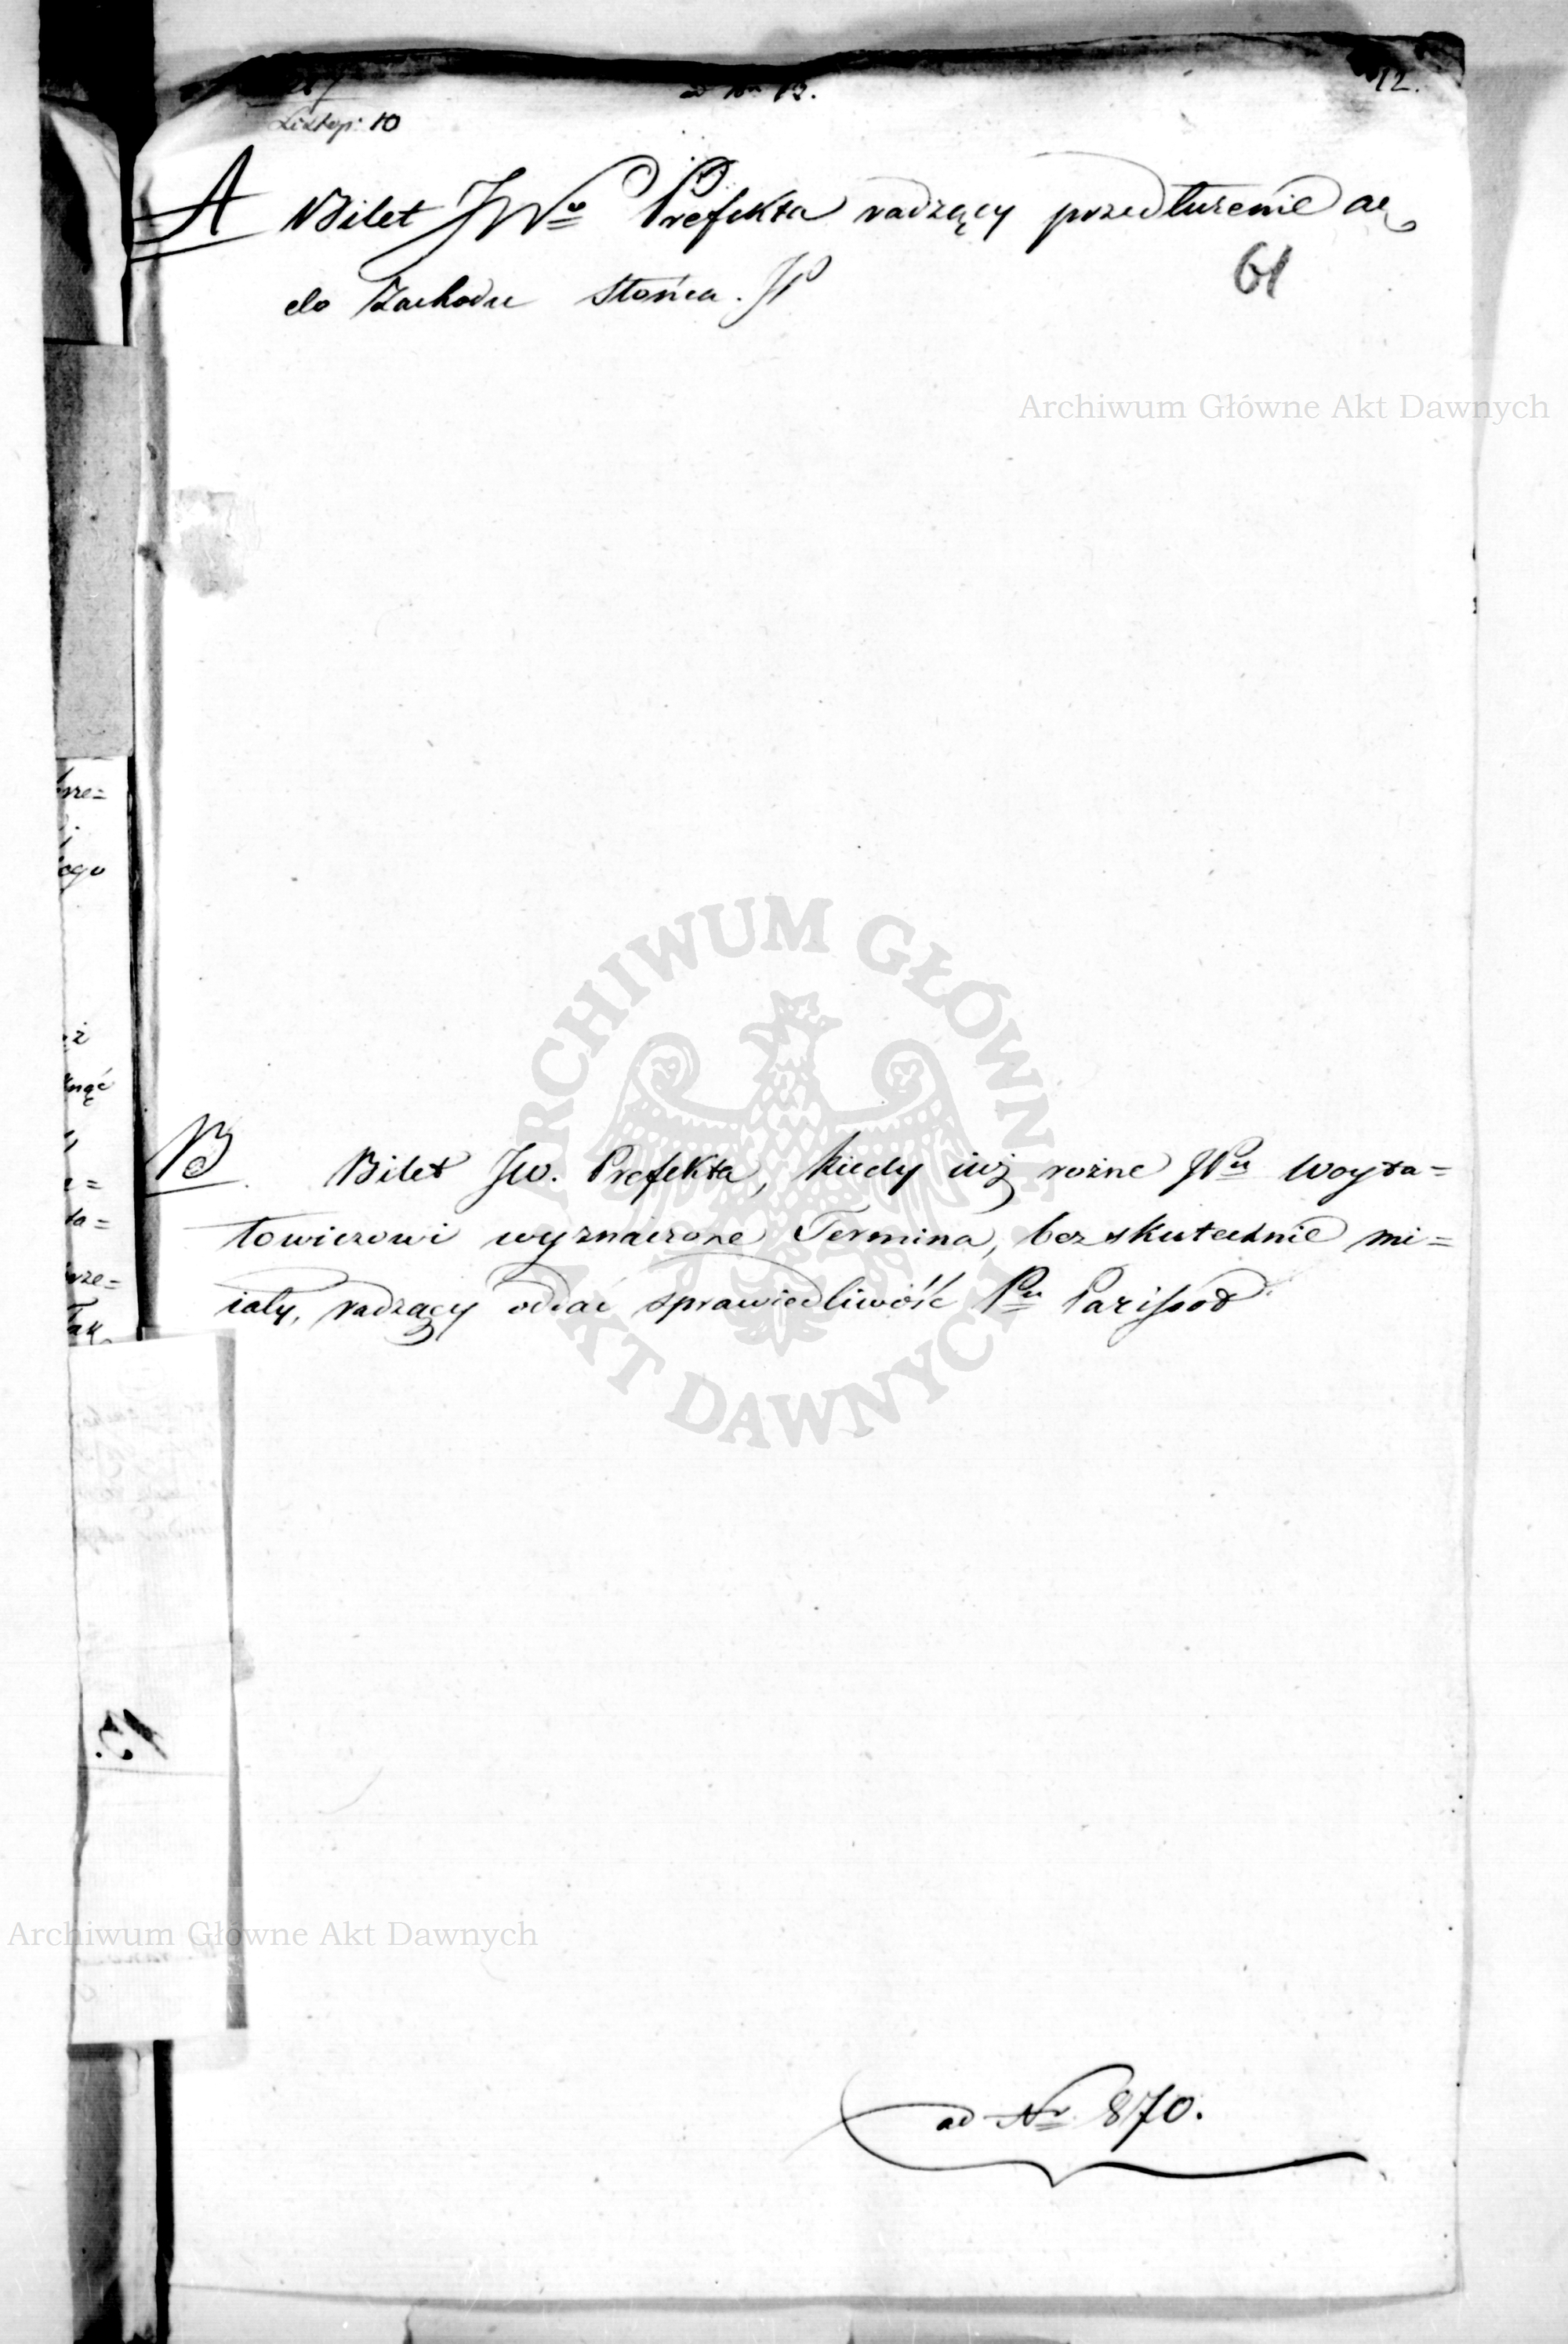 12.
Listop: 10
A Bilet JWo Prefekta radzący przedłużenie aż
do Zachodu słońca. JP
61
Archiwum Główne Akt Dawnych
bre=
ogo
ż
knąć
ARCHIWUM GŁÓWNE AKT DAWNYCH
B. Bilet JW. Prefekta, kiedy iuż rożne JPu Woyta=
towiczowi wyznaczone Termina, bezskutecznie mi=
iały, radzący oddać sprawiedliwość Pu Parissod
ta=
13.
Archiwum Główne Akt Dawnych
ad Nr 870.